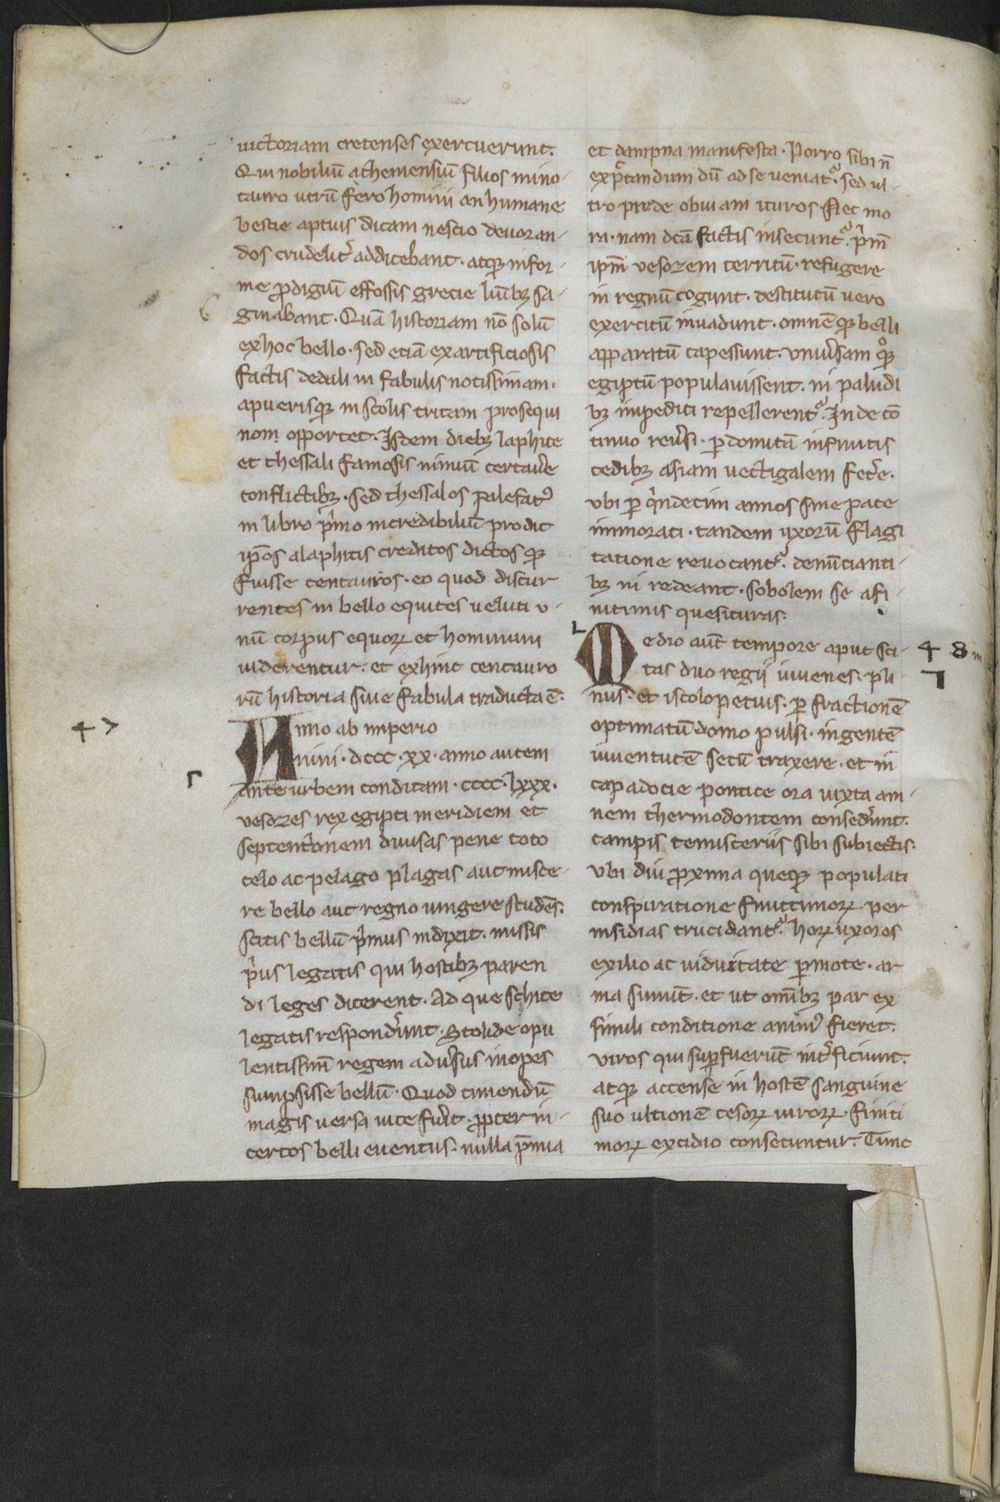 uictoriam cretenses exercuerunt.
Qui nobiliū atheniensiū filios mino-
tauro utrū fero homini an humane
bestie aptius dicam nescio deuoran-
dos crudelit̄ addicebant. atqꝫ infor-
me prodigiū effossis grecie luminibꝫ sa-
ginabant. Quā historiam nō solū
ex hoc bello. sed etiā ex artificiosis
factis dedali in fabulis notissimam.
a puerisqꝫ in scolis tritam prosequi
non opportet. Isdem diebꝫ laphite
et thessali famosis nimiū certauere
conflictibꝫ. sed thessalos palefat᷒
in libro p̄mo incredibiliū prodit
ip̄os a laphitis creditos dictosqꝫ
fuisse centauros. eo quod discur
rentes in bello equites ueluti u-
nū corpus equoꝝ et hominum
uiderentur. et exhinc centauro
rū historia siue fabula traducta ē.
47
Anno ab imperio
nini. dccc. xx. anno autem
ante urbem conditam. cccc. lxxx.
uesozes rex egipti meridiem et
septentrionem diuisas pene toto
celo ac pelago plagas aut misce-
re bello aut regno iungere studēs.
scitis bellū p̄mus indixit. missis
p̄us legatis qui hostibꝫ paren
di leges dicerent. Ad que schite
legatis responderunt. Stolide opu
lentissimū regem aduersus inopes
sumpsisse bellū. Quod timendū
magis uersa uice fuerit. propter in-
certos belli euentus. nulla p̄mia
et dampna manifesta. Porro sibi n̄
exp̄tandum dū ad se ueniat᷑. sed ul-
tro prede obuiam ituros. Nec mo
ra. nam dc̄ā factis insecunt᷑. p̄mū
ip̄m uesozem territū. refugere
in regnū cogunt. destitutū uero
exercitū inuadunt. omnē qꝫ belli
apparatū capessunt. uniuersam qꝫ
egiptū populauissent. ni paludi
bꝫ impediti repellerent᷑. Inde cō
tinuo reuersi. perdomitā infinitis
cedibꝫ asiam uectigalem fecere.
ubi per quindecim annos sine pace
inmorati. tandem uxorū flagi
tatione reuocant᷑. denūcianti-
bꝫ ni redeant. sobolem se a fi-
nitimis quesituras.
48
Medio aut̄ tempore aput sci-
tas duo regii iuuenes. pli-
nius. et iscolopetius. per fractionē
optimatū domo pulsi. ingentē
iuuentutē secū traxere. et in
capadocie pontice ora iuxta am-
nem thermodontem consederunt.
campis temisceriis sibi subiectis.
Ubi diu proxima queqꝫ populati
conspiratione finitimoꝝ per
insidias trucidant᷑. hoꝝ uxores
exilio ac uiduitate permote. ar
ma sumūt. et ut omībꝫ par ex
simili conditione animus fieret.
uiros qui superfuerūt interficiunt.
atqꝫ accense in hostē sanguine
suo ultionē cesoꝝ uiroꝝ. finiti
moꝝ excidio consecuntur. Tunc